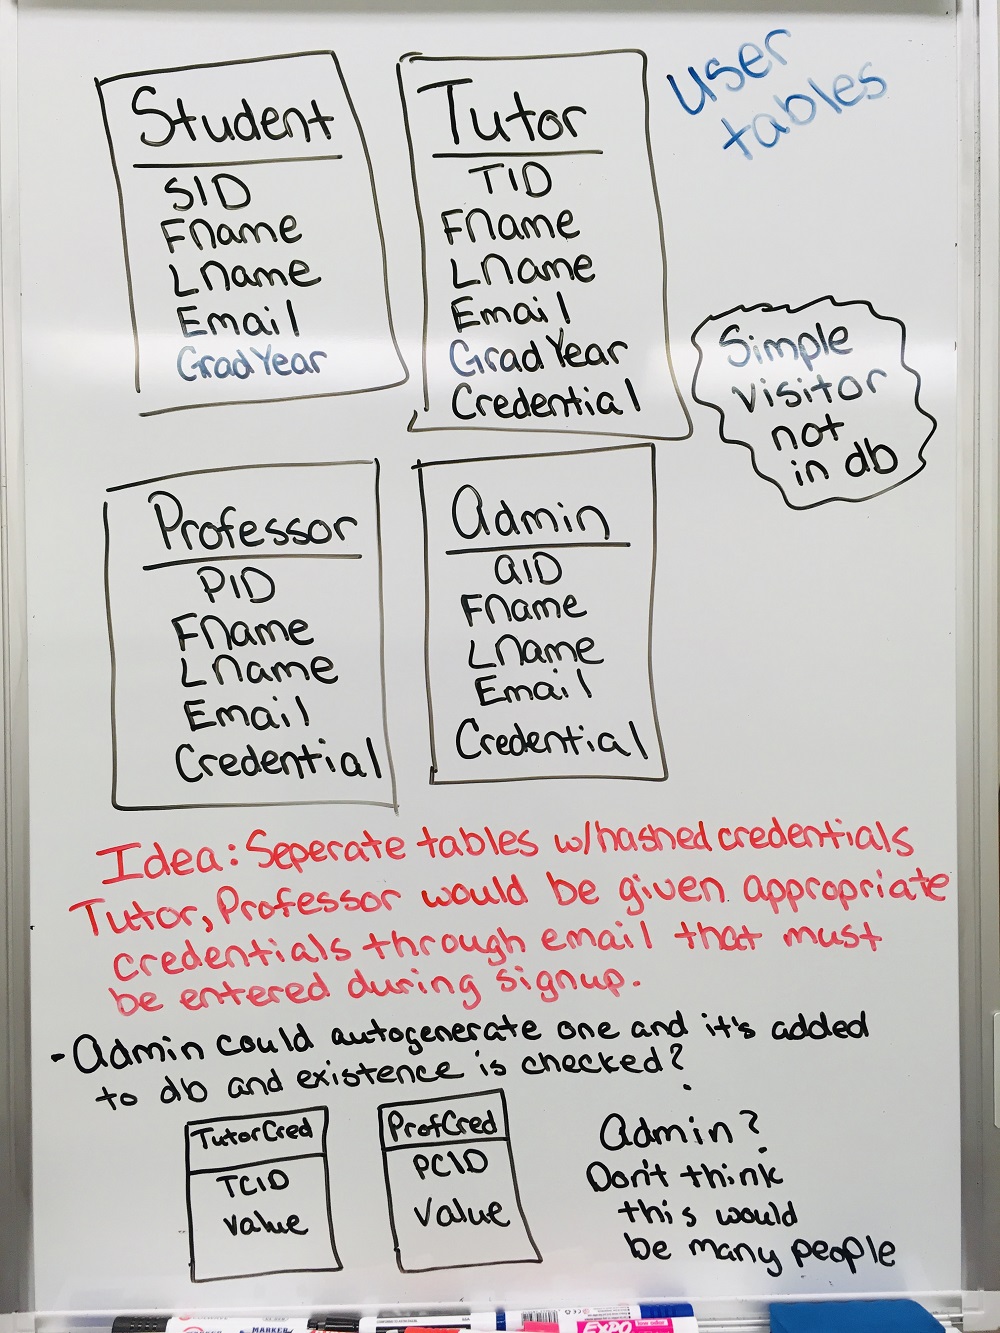 User
tables
Student
SID
FName
LName
Email
GradYear
Tutor
TID
FName
LName
Email
GradYear
Credential
Simple
visitor
not
in db
Professor
PID
FName
LName
Email
Credential
Admin
AID
FName
LName
Email
Credential
Idea: Seperate tables w/hashed credentials
Tutor, Professor would be given appropriate
credentials through email that must
be entered during signup.
- Admin could autogenerate one and it's added
to db and existence is checked?
TutorCred
TCID
Value
ProfCred
PCID
Value
Admin?
Don't think
this would
be many people
MARKER
EXPO